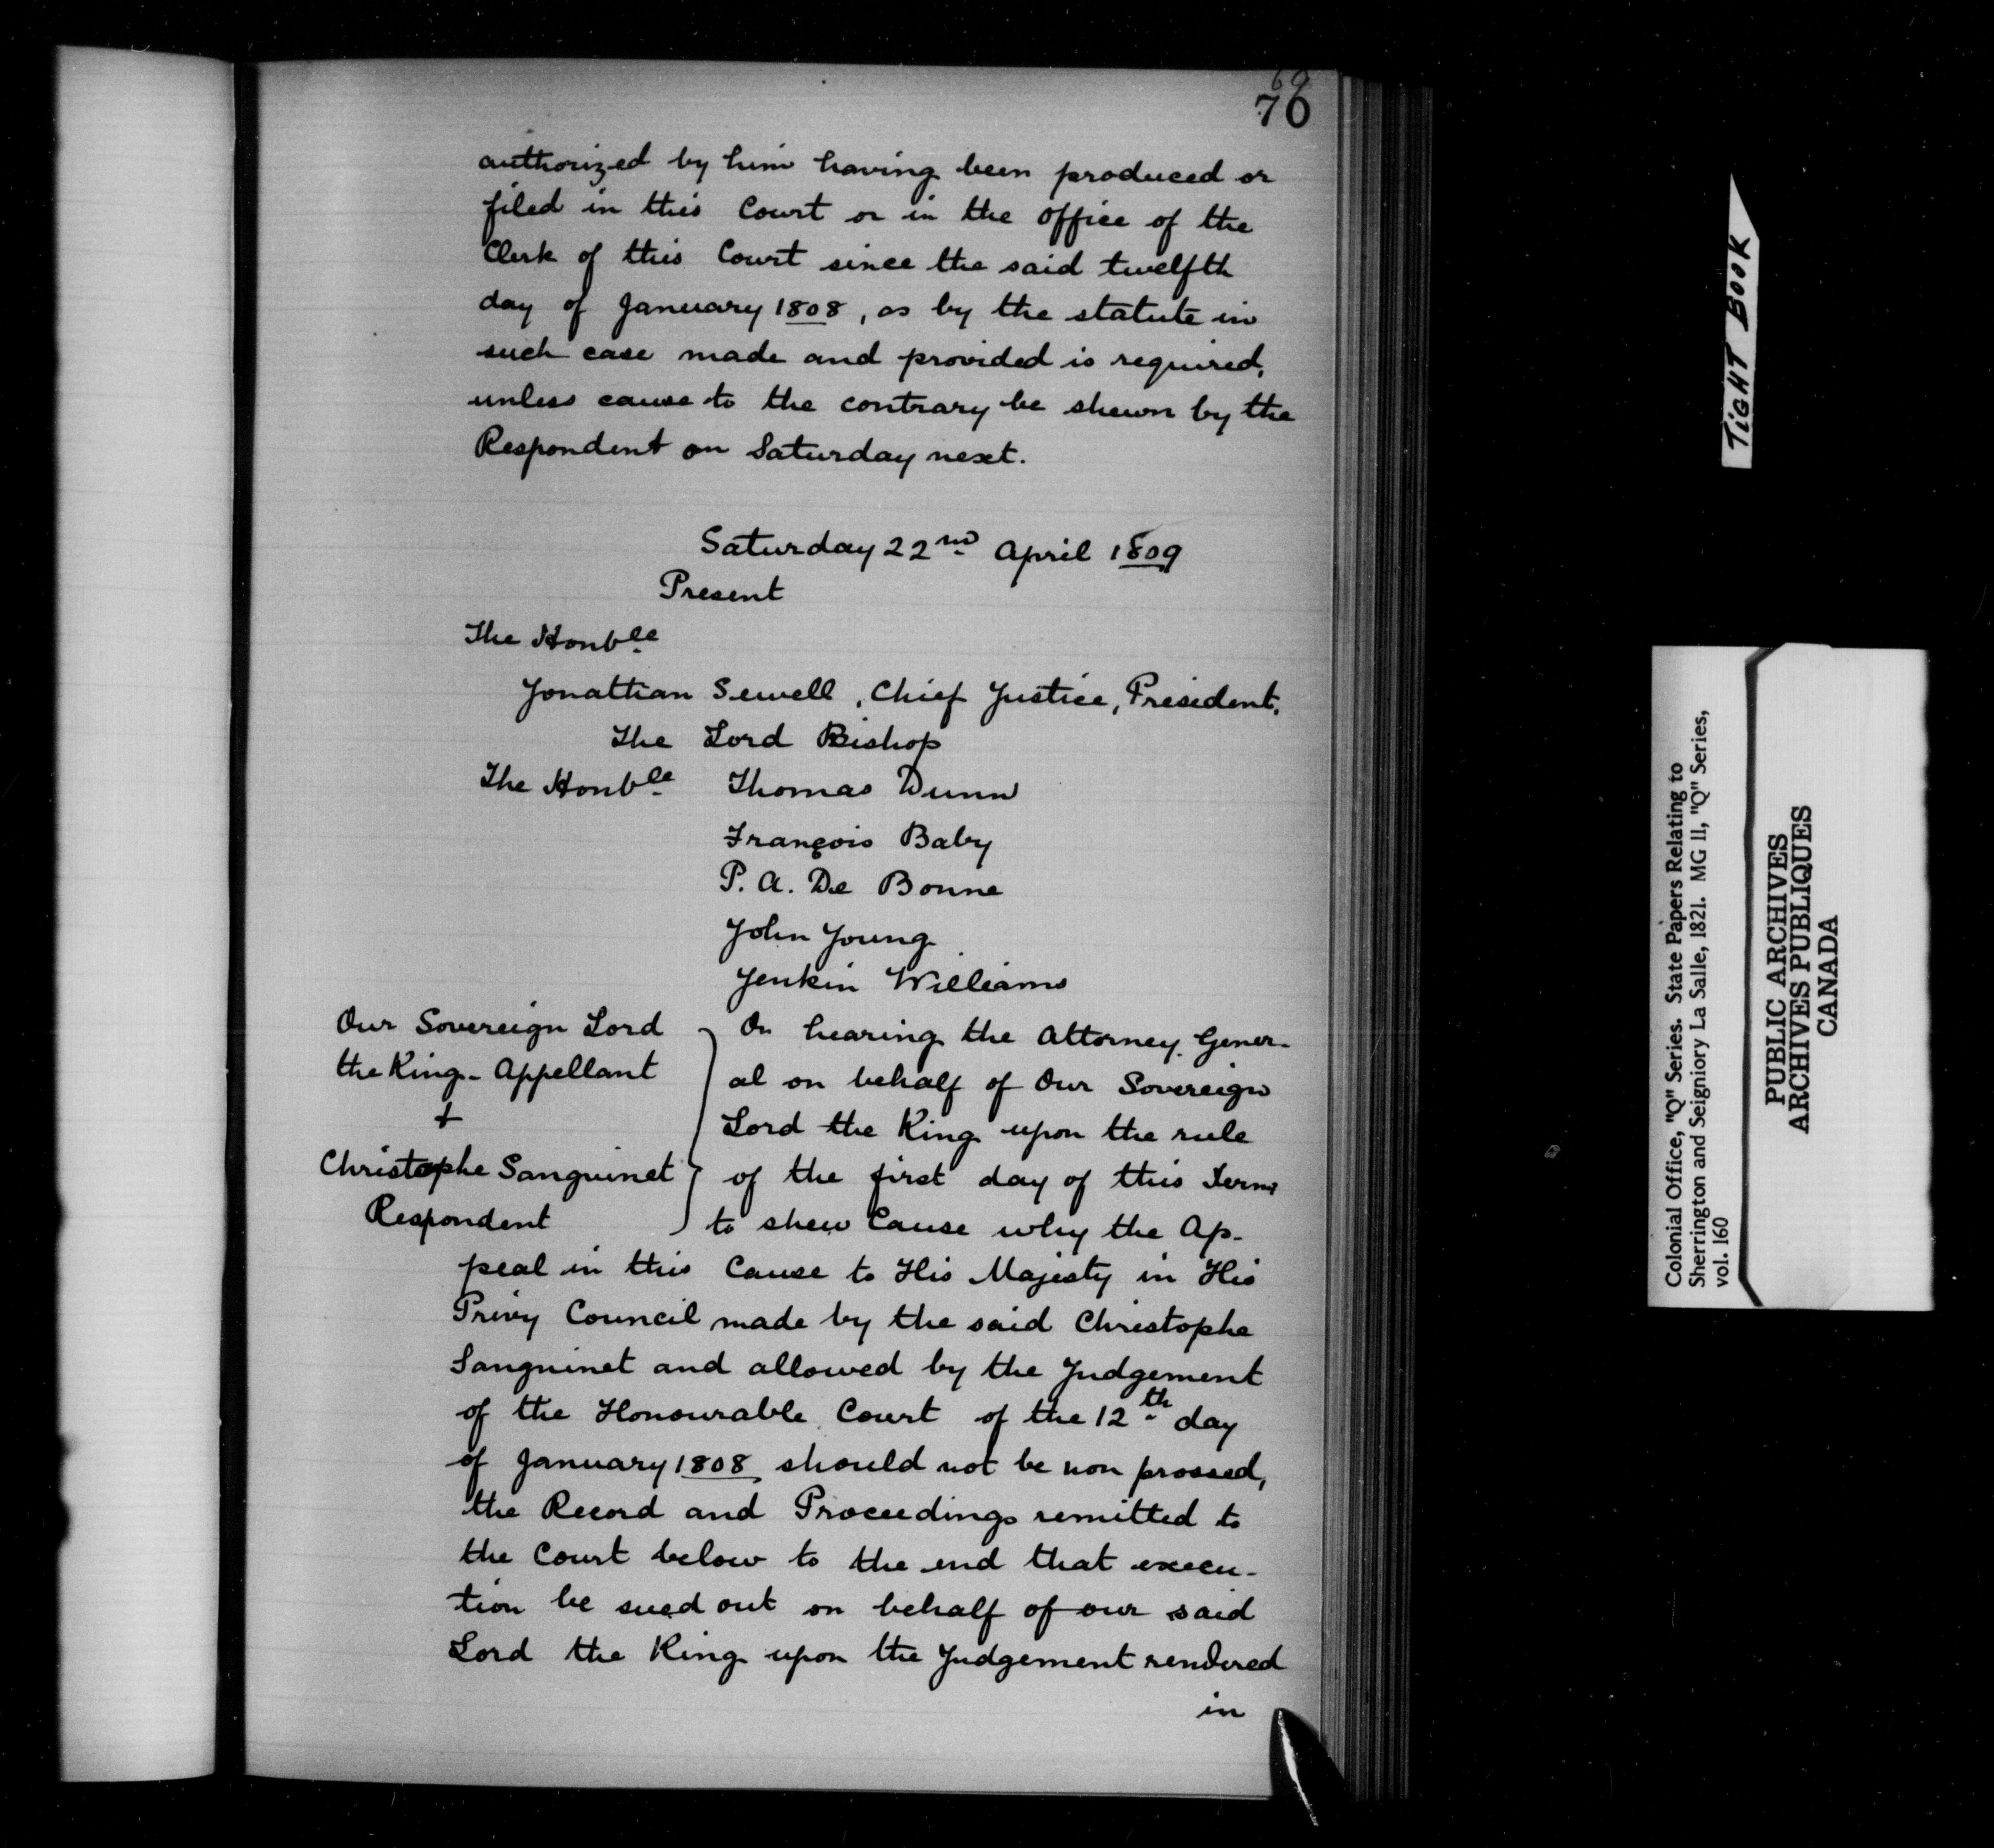 69
76
authorized by him having been produced or
filed in this Court or in the office of the
Clerk of this Court since the said twelfth
day of January 1808, as by the statute in
such case made and provided is required,
unless cause to the contrary be shewn by the
Respondent on Saturday next.
Saturday 22nd April 1809
Present
The Honble
Jonathan Sewell, Chief Justice, President.
The Lord Bishop
The Honble Thomas Dunn
François Baby
P. A. De Bonne
John Young
Jenkin Williams
Our Sovereign Lord
the King - Appellant
+
Christophe Sanguinet
Respondent
On hearing the Attorney Gener-
al on behalf of Our Sovereign
Lord the King upon the rule
of the first day of this Term
to shew Cause why the Ap-
peal in this Cause to His Majesty in His
Privy Council made by the said Christophe
Sanguinet and allowed by the Judgement
of the Honourable Court of the 12th day
of January 1808 should not be non prossed,
the Record and Proceedings remitted to
the Court below to the end that execu-
tion be sued out on behalf of our said
Lord the King upon the Judgement rendered
in
TIGHT BOOK
Colonial Office, "Q" Series. State Papers Relating to
Sherrington and Seigniory La Salle, 1821. MG 11, "Q" Series,
vol. 160
PUBLIC ARCHIVES
ARCHIVES PUBLIQUES
CANADA